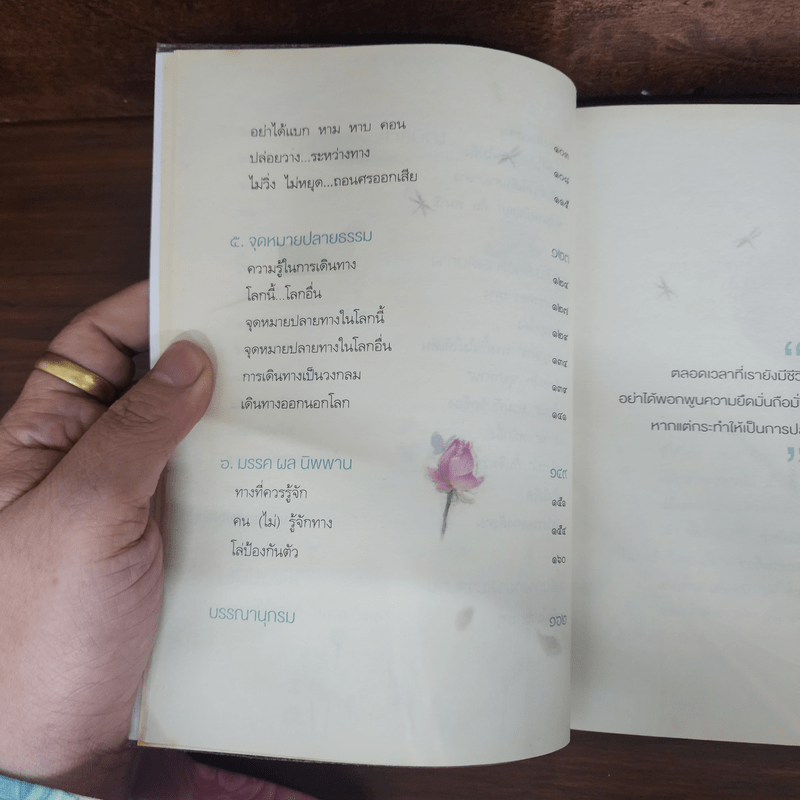 อย่าได้แบก หาม หาบ คอน ๑๐๓
ปล่อยวาง...ระหว่างทาง ๑๐๘
ไม่วิ่ง ไม่หยุด...ถอนศรออกเสีย ๑๑๕
๕. จุดหมายปลายธรรม ๑๒๓
ความรู้ในการเดินทาง ๑๒๔
โลกนี้...โลกอื่น ๑๒๗
จุดหมายปลายทางในโลกนี้ ๑๒๙
จุดหมายปลายทางในโลกอื่น ๑๓๔
การเดินทางเป็นวงกลม ๑๓๙
เดินทางออกนอกโลก ๑๔๖
๖. มรรค ผล นิพพาน ๑๔๗
ทางที่ควรรู้จัก ๑๕๑
คน (ไม่) รู้จักทาง ๑๕๔
โล่ป้องกันตัว ๑๖๐
บรรณานุกรม
“
ตลอดเวลาที่เรายังมีชีวิ
อย่าได้พอกพูนความยึดมั่นถือมั่
หากแต่กระทำให้เป็นการปล
”